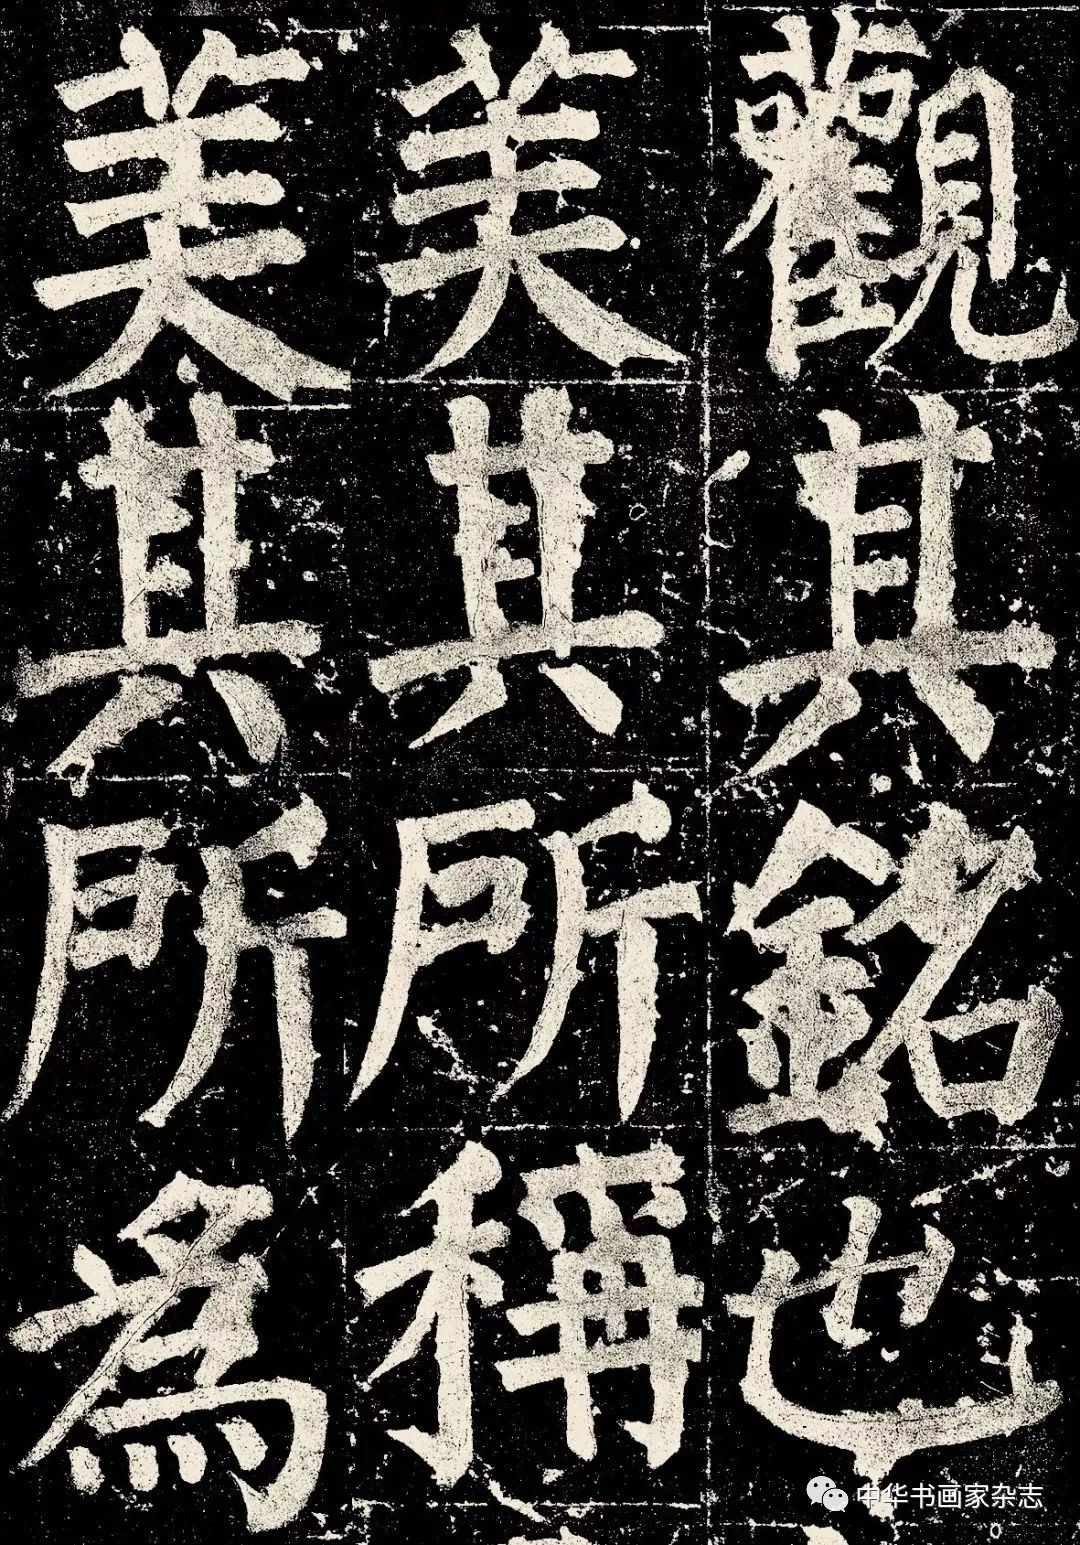 觀其銘也
美其所稱
美其所為
中华书画家杂志